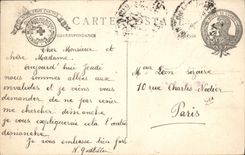 CARTE POSTALE
CORRESPONDANCE
Cher Monsieur et
chère Madame.
Aujourd'hui jeudi
nous sommes allés aux
invalides et je viens vous
demander de ne pas venir
me chercher dimanche
je vous expliquerai cela l'autre
dimanche.
Je vous embrasse bien fort
Monsieur Léon
10 rue Charles Nodier
Paris